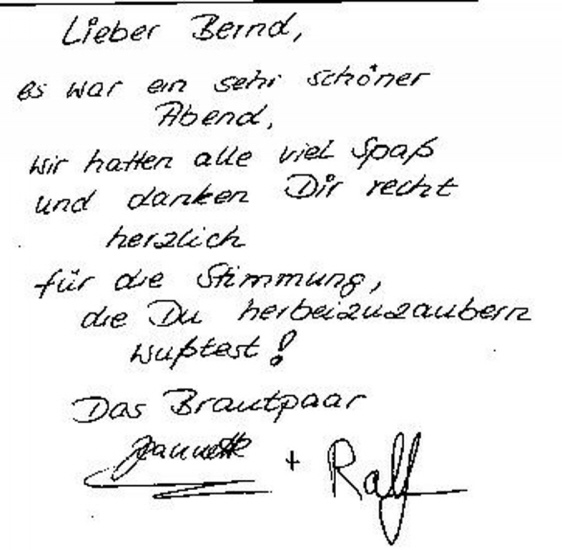 Lieber Bernd,
es war ein sehr schöner
Abend,
wir hatten alle viel Spaß
und danken Dir recht
herzlich
für die Stimmung,
die Du herbeizuzaubern
wußtest!
Das Brautpaar
Jannette + Ralf